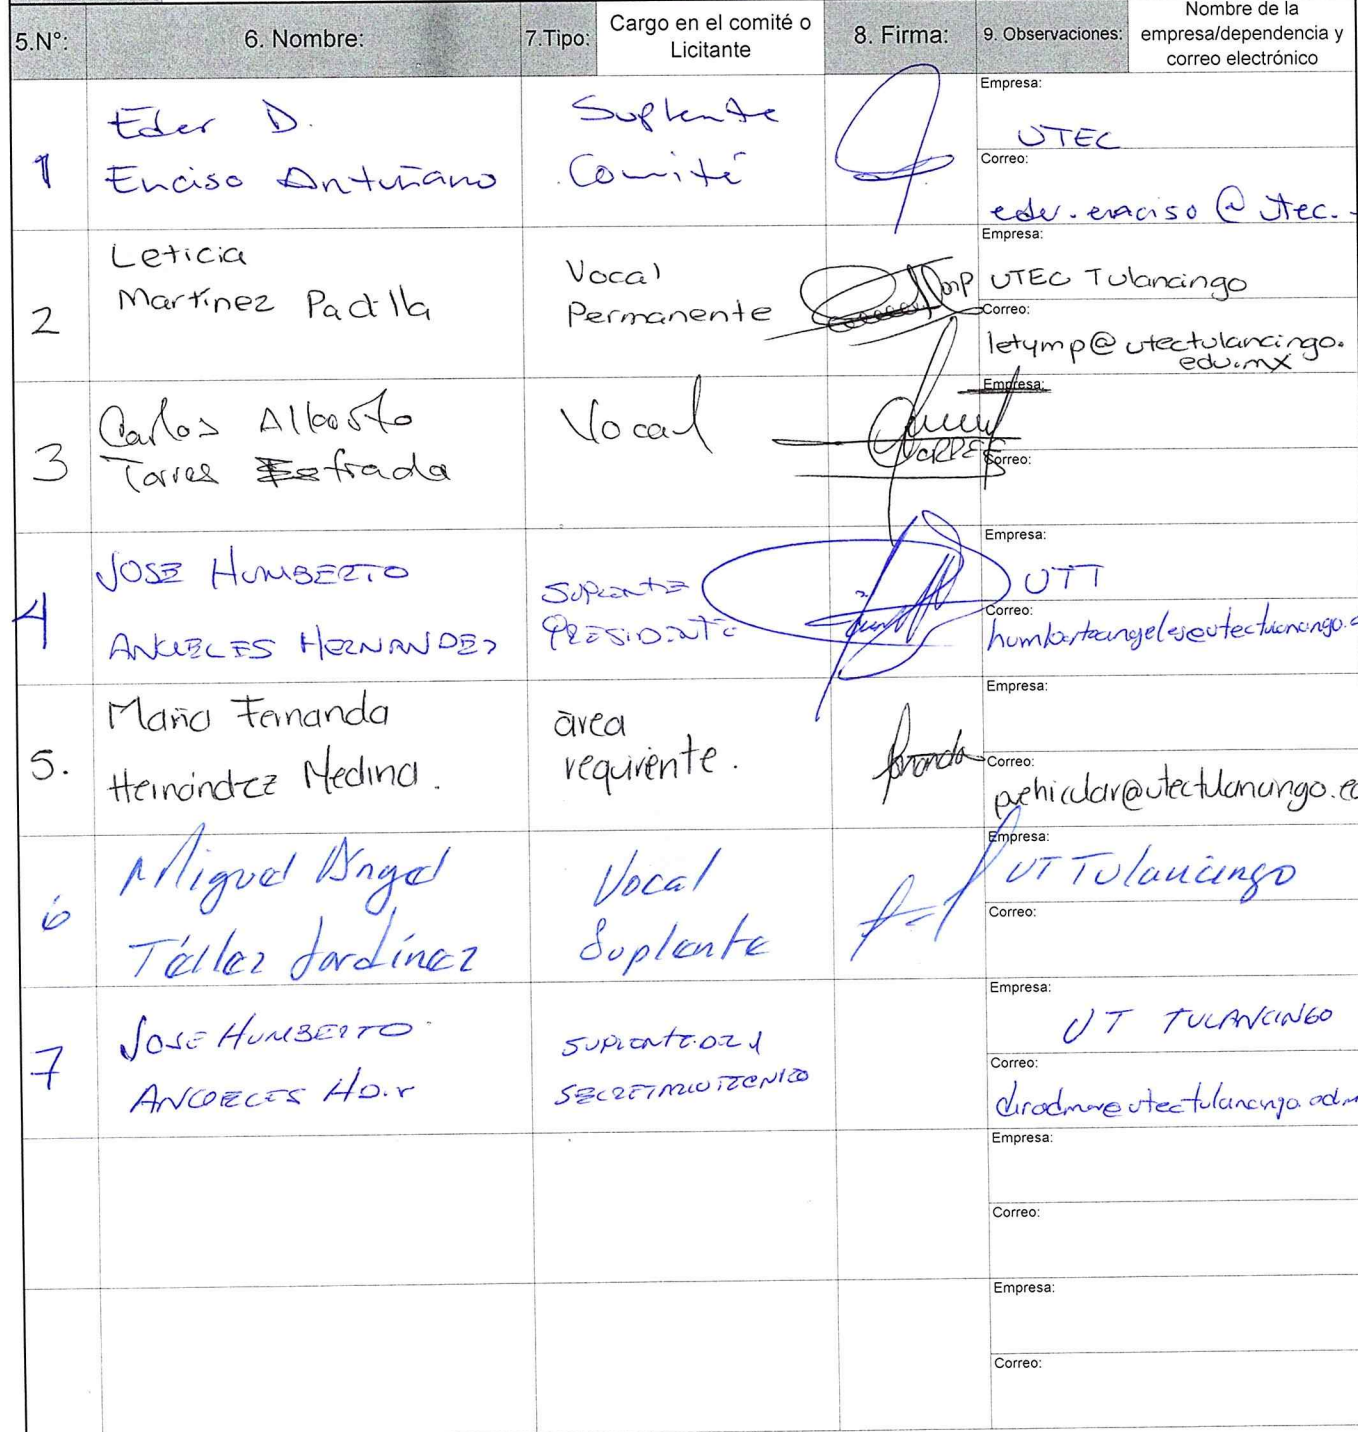 5.N°:
6. Nombre:
7.Tipo:
Cargo en el comité o
Licitante
8. Firma:
9. Observaciones:
Nombre de la
empresa/dependencia y
correo electrónico
1
Eder D.
Enciso Antuñano
Suplente
Comité
Empresa:
UTEC
Correo:
eder.enciso@utec.
2
Leticia
Martínez Padilla
Vocal
Permanente
Empresa:
UTEC Tulancingo
Correo:
letymp@utectulancingo.
edu.mx
3
Carlos Alberto
Torres Estrada
Vocal
Empresa:
Correo:
4
JOSE HUMBERTO
ANGELES HERNANDEZ
SUPLENTE
PRESIDENTE
Empresa:
UTT
Correo:
humbertoangeles@utectulancingo.
5.
María Fernanda
Hernández Medina.
àrea
requirente.
Empresa:
Correo:
pvehicular@utectulancingo.ed
6
Miguel Angel
Téllez Jardínez
Vocal
Suplente
Empresa:
UT Tulancingo
Correo:
7
JOSE HUMBERTO
ANGELES
SUPLENTE DEL
SECRETARIO TECNICO
Empresa:
UT TULANCINGO
Correo:
Empresa:
Correo:
Empresa:
Correo: